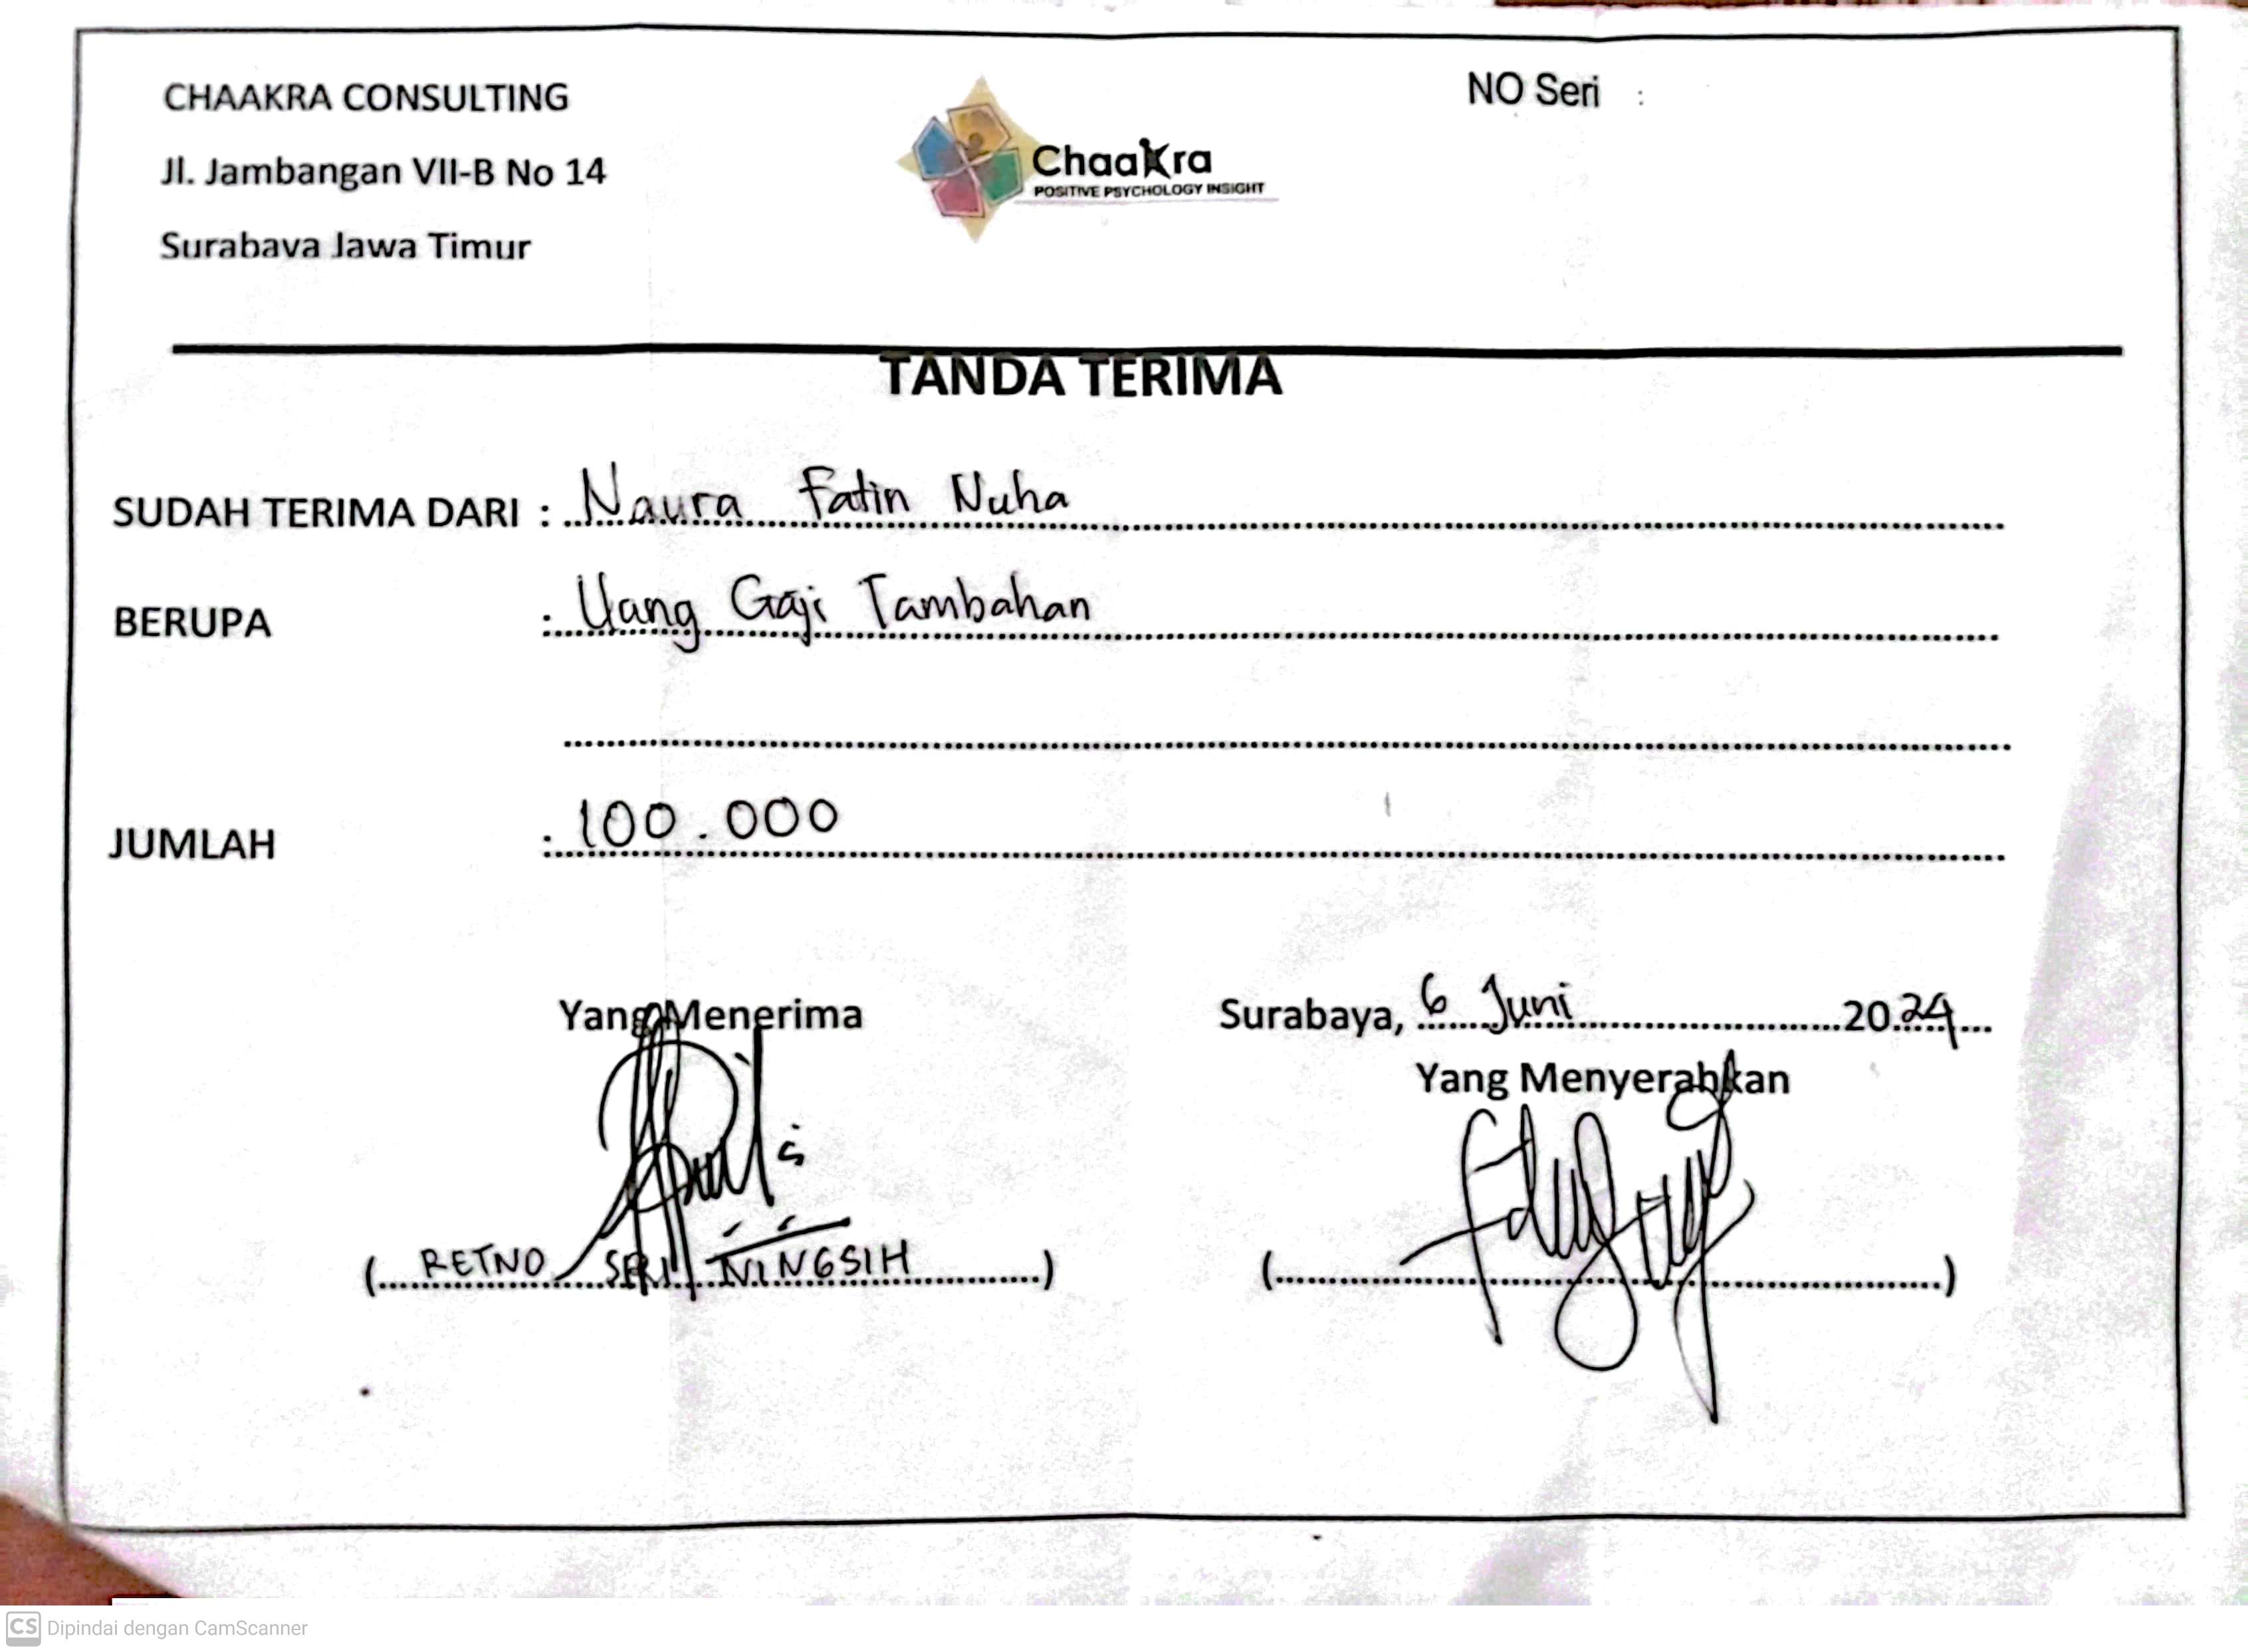 CHAAKRA CONSULTING
Jl. Jambangan VII-B No 14
Surabaya Jawa Timur
Chaakra
POSITIVE PSYCHOLOGY INSIGHT
NO Seri :
TANDA TERIMA
SUDAH TERIMA DARI : Naura Fatin Nuha
BERUPA : Uang Gaji Tambahan
JUMLAH : 100.000
Yang Menerima
Surabaya, 6 Juni 2024
Yang Menyerahkan
( RETNO SERI NINGSIH )
( )
CS Dipindai dengan CamScanner